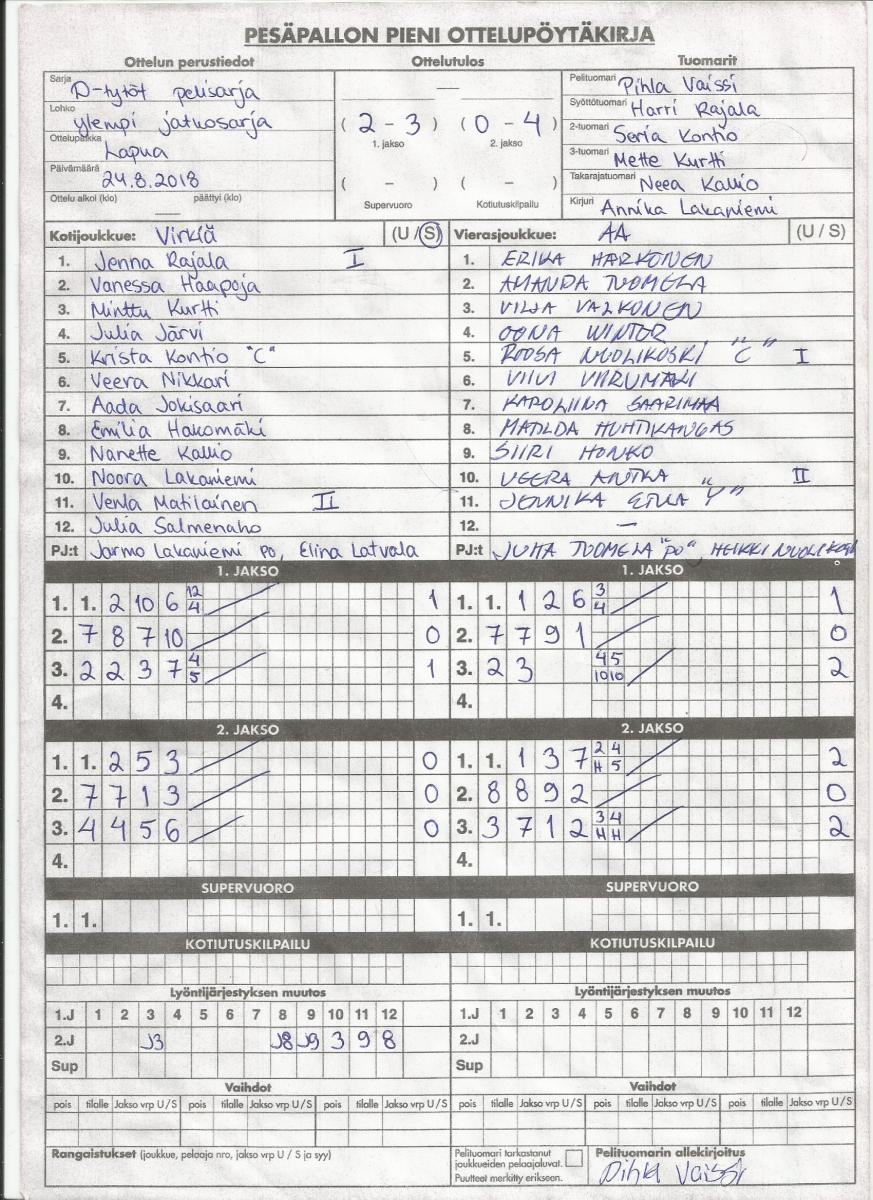 PESÄPALLON PIENI OTTELUPÖYTÄKIRJA
Ottelun perustiedot Ottelutulos Tuomarit
Sarja D-tytöt pelisarja
Lohko ylempi jatkosarja
Ottelupaikka Lapua
Päivämäärä 24.8.2018
Ottelu alkoi (klo) — päättyi (klo)
—
( 2 - 3 ) ( 0 - 4 )
1. jakso 2. jakso
( - ) ( - )
Supervuoro Kotiutuskilpailu
Pelituomari Pihla Vaissi
Syöttötuomari Harri Rajala
2-tuomari Seria Kontio
3-tuomari Mette Kurtti
Takarajatuomari Neea Kallio
Kirjuri Annika Lakaniemi
Kotijoukkue: Virkiä (U / S)
1. Jenna Rajala I
2. Vanessa Haapoja
3. Minttu Kurtti
4. Julia Järvi
5. Krista Kontio "C"
6. Veera Nikkari
7. Aada Jokisaari
8. Emilia Hakomäki
9. Nanette Kallio
10. Noora Lakaniemi
11. Venla Matilainen II
12. Julia Salmenaho
PJ:t Jarmo Lakaniemi PO, Elina Latvala
Vierasjoukkue: AA (U / S)
1. ERIKA HARKONEN
2. AMANDA TUOMELA
3. VILJA VALKONEN
4. OONA WINTER
5. ROOSA NUOLIKOSKI "C" I
6. VIIVI VIIRUMAKI
7. KAROLIINA SAARIMAA
8. MATILDA HUHTIKANGAS
9. SIIRI HONKO
10. VEERA ANTKA II
11. JENNIKA ETULA "Y"
12. —
PJ:t JUHA TUOMELA "PO", HEIKKI NUOLIKOSKI
1. JAKSO
1. 1. 2 10 6 12 4 1
2. 7 8 7 10 0
3. 2 2 3 7 4 5 1
4.
2. JAKSO
1. 1. 2 5 3 0
2. 7 7 1 3 0
3. 4 4 5 6 0
4.
SUPERVUORO
1. 1.
KOTIUTUSKILPAILU
1. JAKSO
1. 1. 1 2 6 3 4 1
2. 7 7 9 1 0
3. 2 3 4 5 10 10 2
4.
2. JAKSO
1. 1. 1 3 7 2 4 H 5 2
2. 8 8 9 2 0
3. 3 7 1 2 3 4 H H 2
4.
SUPERVUORO
1. 1.
KOTIUTUSKILPAILU
Lyöntijärjestyksen muutos
1.J 1 2 3 4 5 6 7 8 9 10 11 12
2.J J3 J8 J9 3 9 8
Sup
Vaihdot
pois tilalle Jakso vrp U / S pois tilalle Jakso vrp U / S pois tilalle Jakso vrp U / S
Lyöntijärjestyksen muutos
1.J 1 2 3 4 5 6 7 8 9 10 11 12
2.J
Sup
Vaihdot
pois tilalle Jakso vrp U / S pois tilalle Jakso vrp U / S pois tilalle Jakso vrp U / S
Rangaistukset (joukkue, pelaaja nro, jakso vrp U / S ja syy)
Pelituomari tarkastanut
joukkueiden pelaajaluvat.
Puutteet merkitty erikseen.
Pelituomarin allekirjoitus
Pihla Vaissi